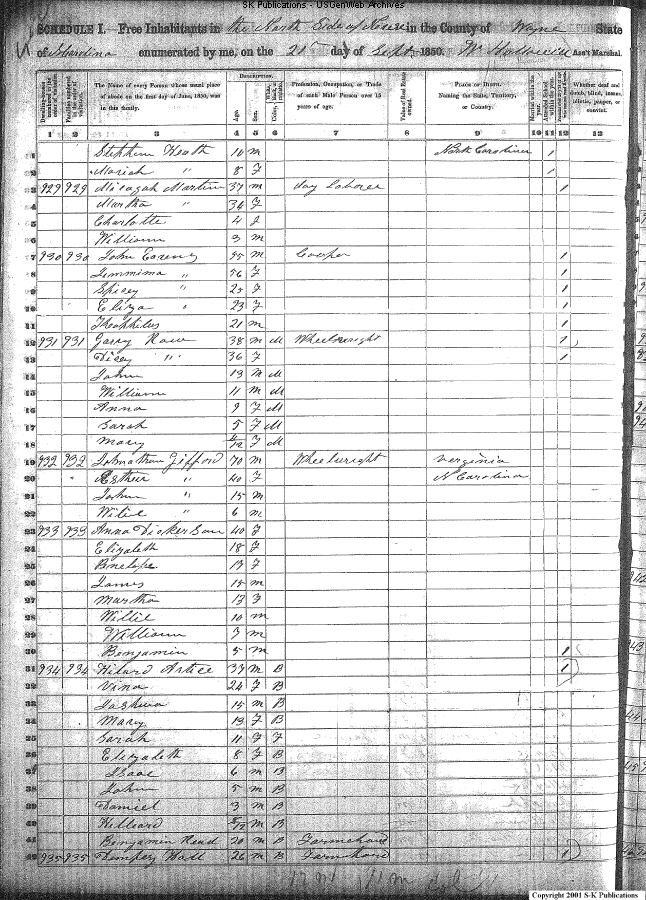 SK Publications - USGenWeb Archives
SCHEDULE I. Free Inhabitants in the North Side of Neuse in the County of Wayne State
of N Carolina enumerated by me, on the 21st day of Sept 1850. Ass't Marshal.
Dwelling-houses numbered in the order of visitation. Families numbered in the order of visitation. The Name of every Person whose usual place of abode on the first day of June, 1850, was in this family. Description. Age. Sex. Color, White, black, or mulatto. Profession, Occupation, or Trade of each Male Person over 15 years of age. Value of Real Estate owned. Place of Birth. Naming the State, Territory, or Country. Whether deaf and dumb, blind, insane, idiotic, pauper, or convict.
1 2 3 4 5 6 7 8 9 10 11 12 13
1 Stephen Heath 10 m North Carolina 1
2 Mariah " 8 F 1
3 929 929 Micagah Martin 37 m day Laborer 1
4 Martha " 34 F
5 Charlotte 4 F
6 William 3 m
7 930 930 John 55 m Cooper 1
8 Jemmima " 56 F 1
9 Spicey " 25 F 1
10 Eliza " 23 F 1
11 Theophilus 21 m 1
12 931 931 Garry 38 m M Wheelwright 1
13 Dicey " 36 F 1
14 John 13 m M
15 William 11 m M
16 Anna 9 F M
17 Sarah 5 F M
18 Mary F M
19 932 932 Johnathan Gifford 70 m Wheelwright Verginia
20 Esther " 40 F N Carolina
21 John " 15 m
22 6 m
23 933 933 Anna Dickerson 40 F
24 Elizabeth 18 F
25 Penelope 17 F
26 James 15 m
27 Martha 13 F
28 Willie 10 m
29 William 7 m
30 Benjamin 5 m 1
31 934 934 Hilard Artice 37 m B 1
32 Vina 24 F B
33 Joshua 15 m B
34 Mary 13 F B
35 Sarah 11 F F
36 Elizabeth 8 F B
37 Isaac 6 m B
38 John 5 m B
39 Daniel 3 m B
40 Hilliard m B
41 Benjamin Read 20 m B Farmehand
42 935 935 Dempsey Hall 26 m B Farmhand 1
Copyright 2001 S-K Publications